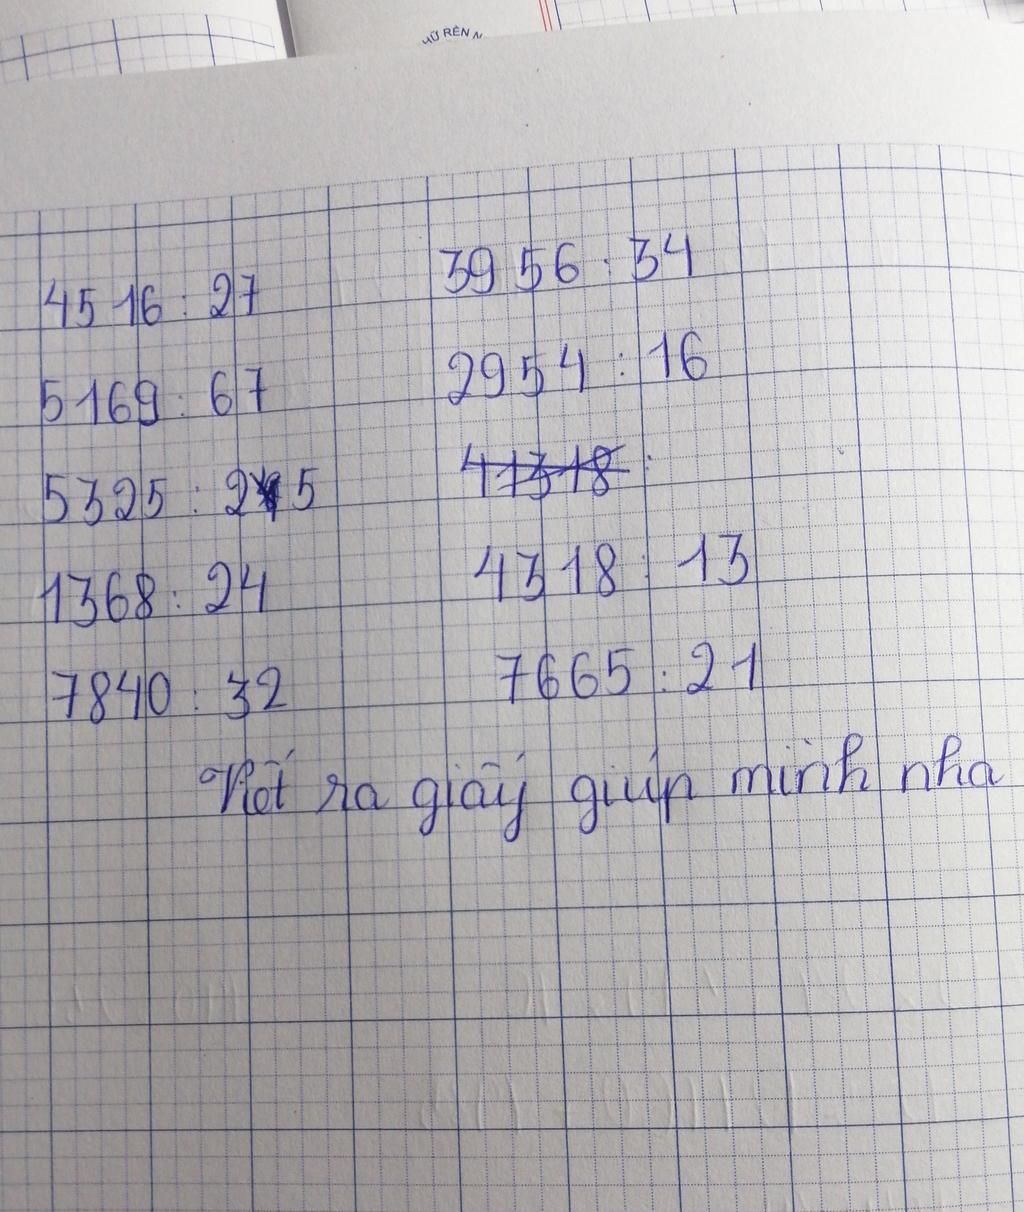 ỮRÈN N
4516 : 27
5169 : 67
5325 : 25
1368 : 24
7840 : 32
3956 : 34
2954 : 16
41318 :
4318 : 13
7665 : 21
Viết ra giấy giúp mình nha